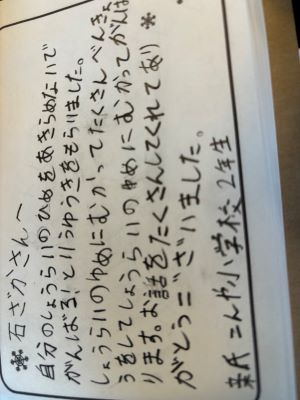 石ざかさんへ
自分のしょうらいのひめをあきらめないで
がんばる！というゆうきをもらいました。
しょうらいのゆめにむかってたくさんべんきょ
うをしてしょうらいのゆめにむかってがんば
ります。お話をたくさんしてくれてあり
がとうございました。
こんや小学校 2年生